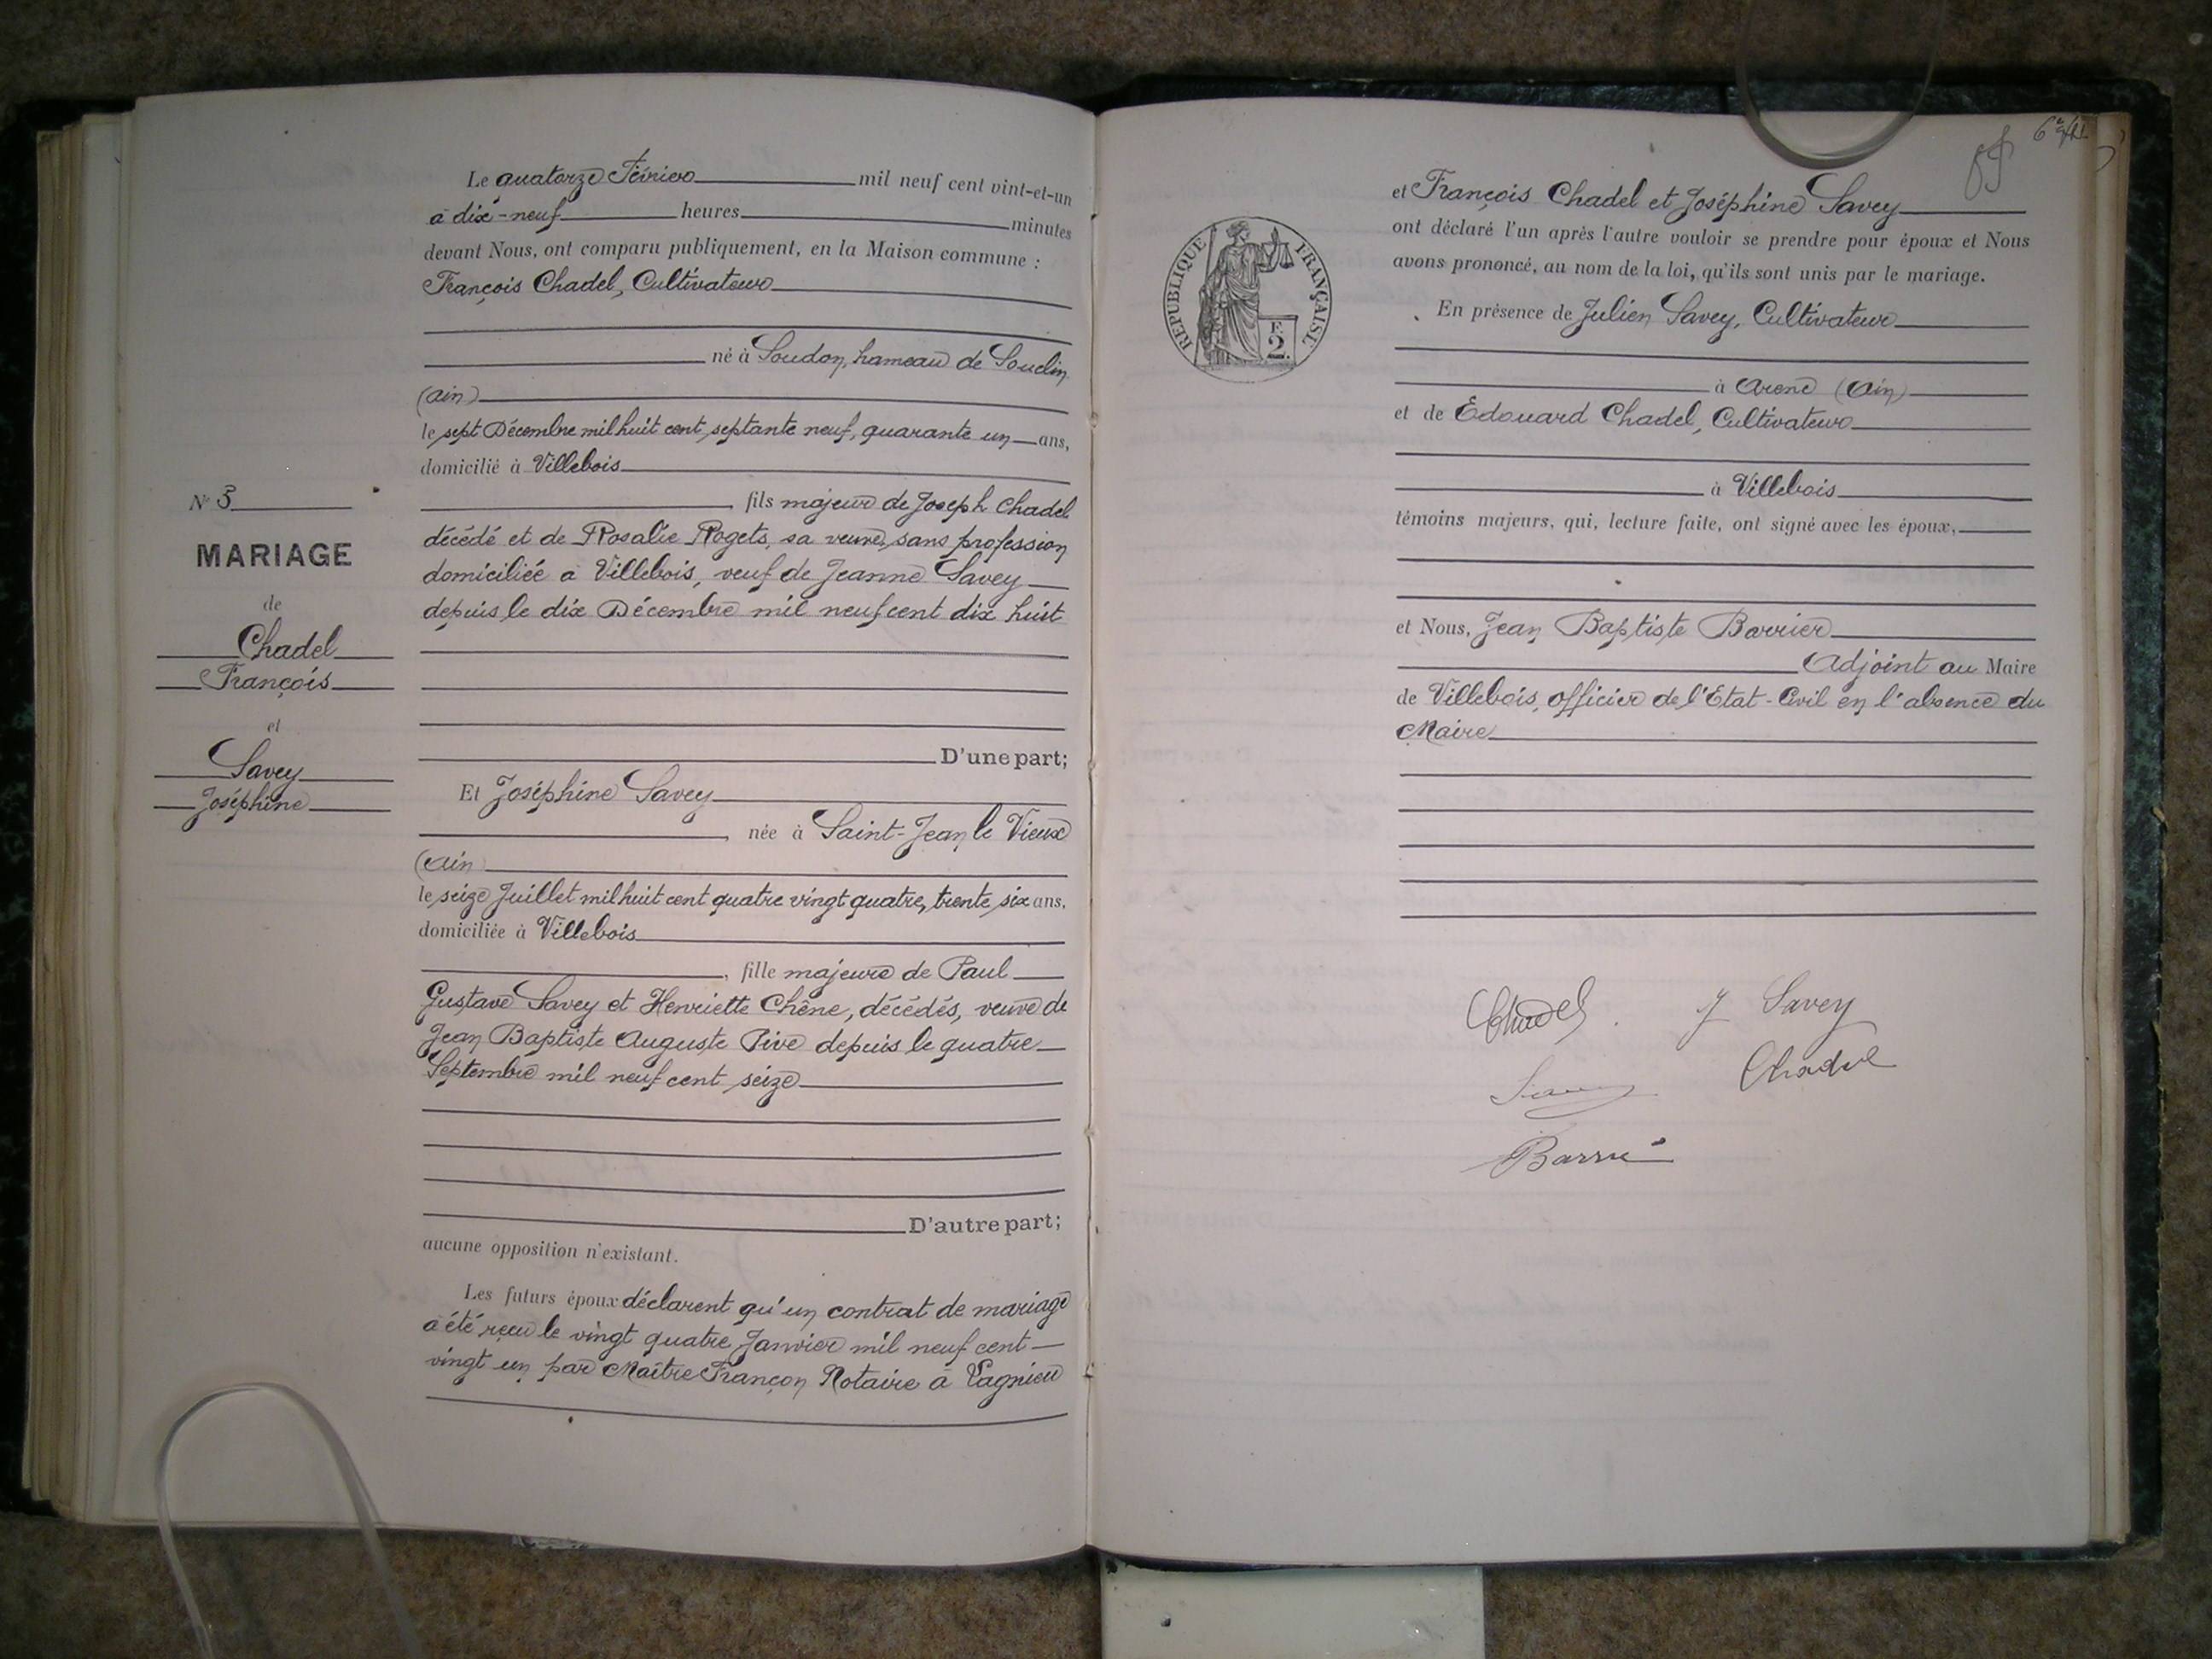 N° 3
MARIAGE
de
Chadel
François
et
Savey
Joséphine
Le quatorze Février mil neuf cent vint-et-un
à dix-neuf heures minutes
devant Nous, ont comparu publiquement, en la Maison commune :
François Chadel, Cultivateur
né à Soudon, hameau de Souclin
(Ain)
le sept Décembre mil huit cent septante neuf, quarante un ans,
domicilié à Villebois
, fils majeur de Joseph Chadel
décédé et de Rosalie Rogets, sa veuve, sans profession
domiciliée à Villebois, veuf de Jeanne Savey
depuis le dix Décembre mil neuf cent dix huit
D'une part;
Et Joséphine Savey
, née à Saint-Jean le Vieux
(Ain
le seize Juillet mil huit cent quatre vingt quatre, trente six ans,
domiciliée à Villebois
, fille majeure de Paul
Gustave Savey et Henriette Chêne, décédés, veuve de
Jean Baptiste Auguste Pive depuis le quatre
Septembre mil neuf cent seize
D'autre part;
aucune opposition n'existant.
Les futurs époux déclarent qu'un contrat de mariage
a été reçu le vingt quatre Janvier mil neuf cent
vingt un par Maître Françon Notaire à Lagnieu
RÉPUBLIQUE FRANÇAISE
F.
2.
et François Chadel et Joséphine Savey
ont déclaré l'un après l'autre vouloir se prendre pour époux et Nous
avons prononcé, au nom de la loi, qu'ils sont unis par le mariage.
En présence de Julien Savey, Cultivateur
à Arenc (Ain)
et de Edouard Chadel, Cultivateur
à Villebois
témoins majeurs, qui, lecture faite, ont signé avec les époux,
et Nous, Jean Baptiste Barrier
Adjoint au Maire
de Villebois, officier de l'Etat-Civil en l'absence du
Maire
Chadel J Savey
Chadel
Barrié